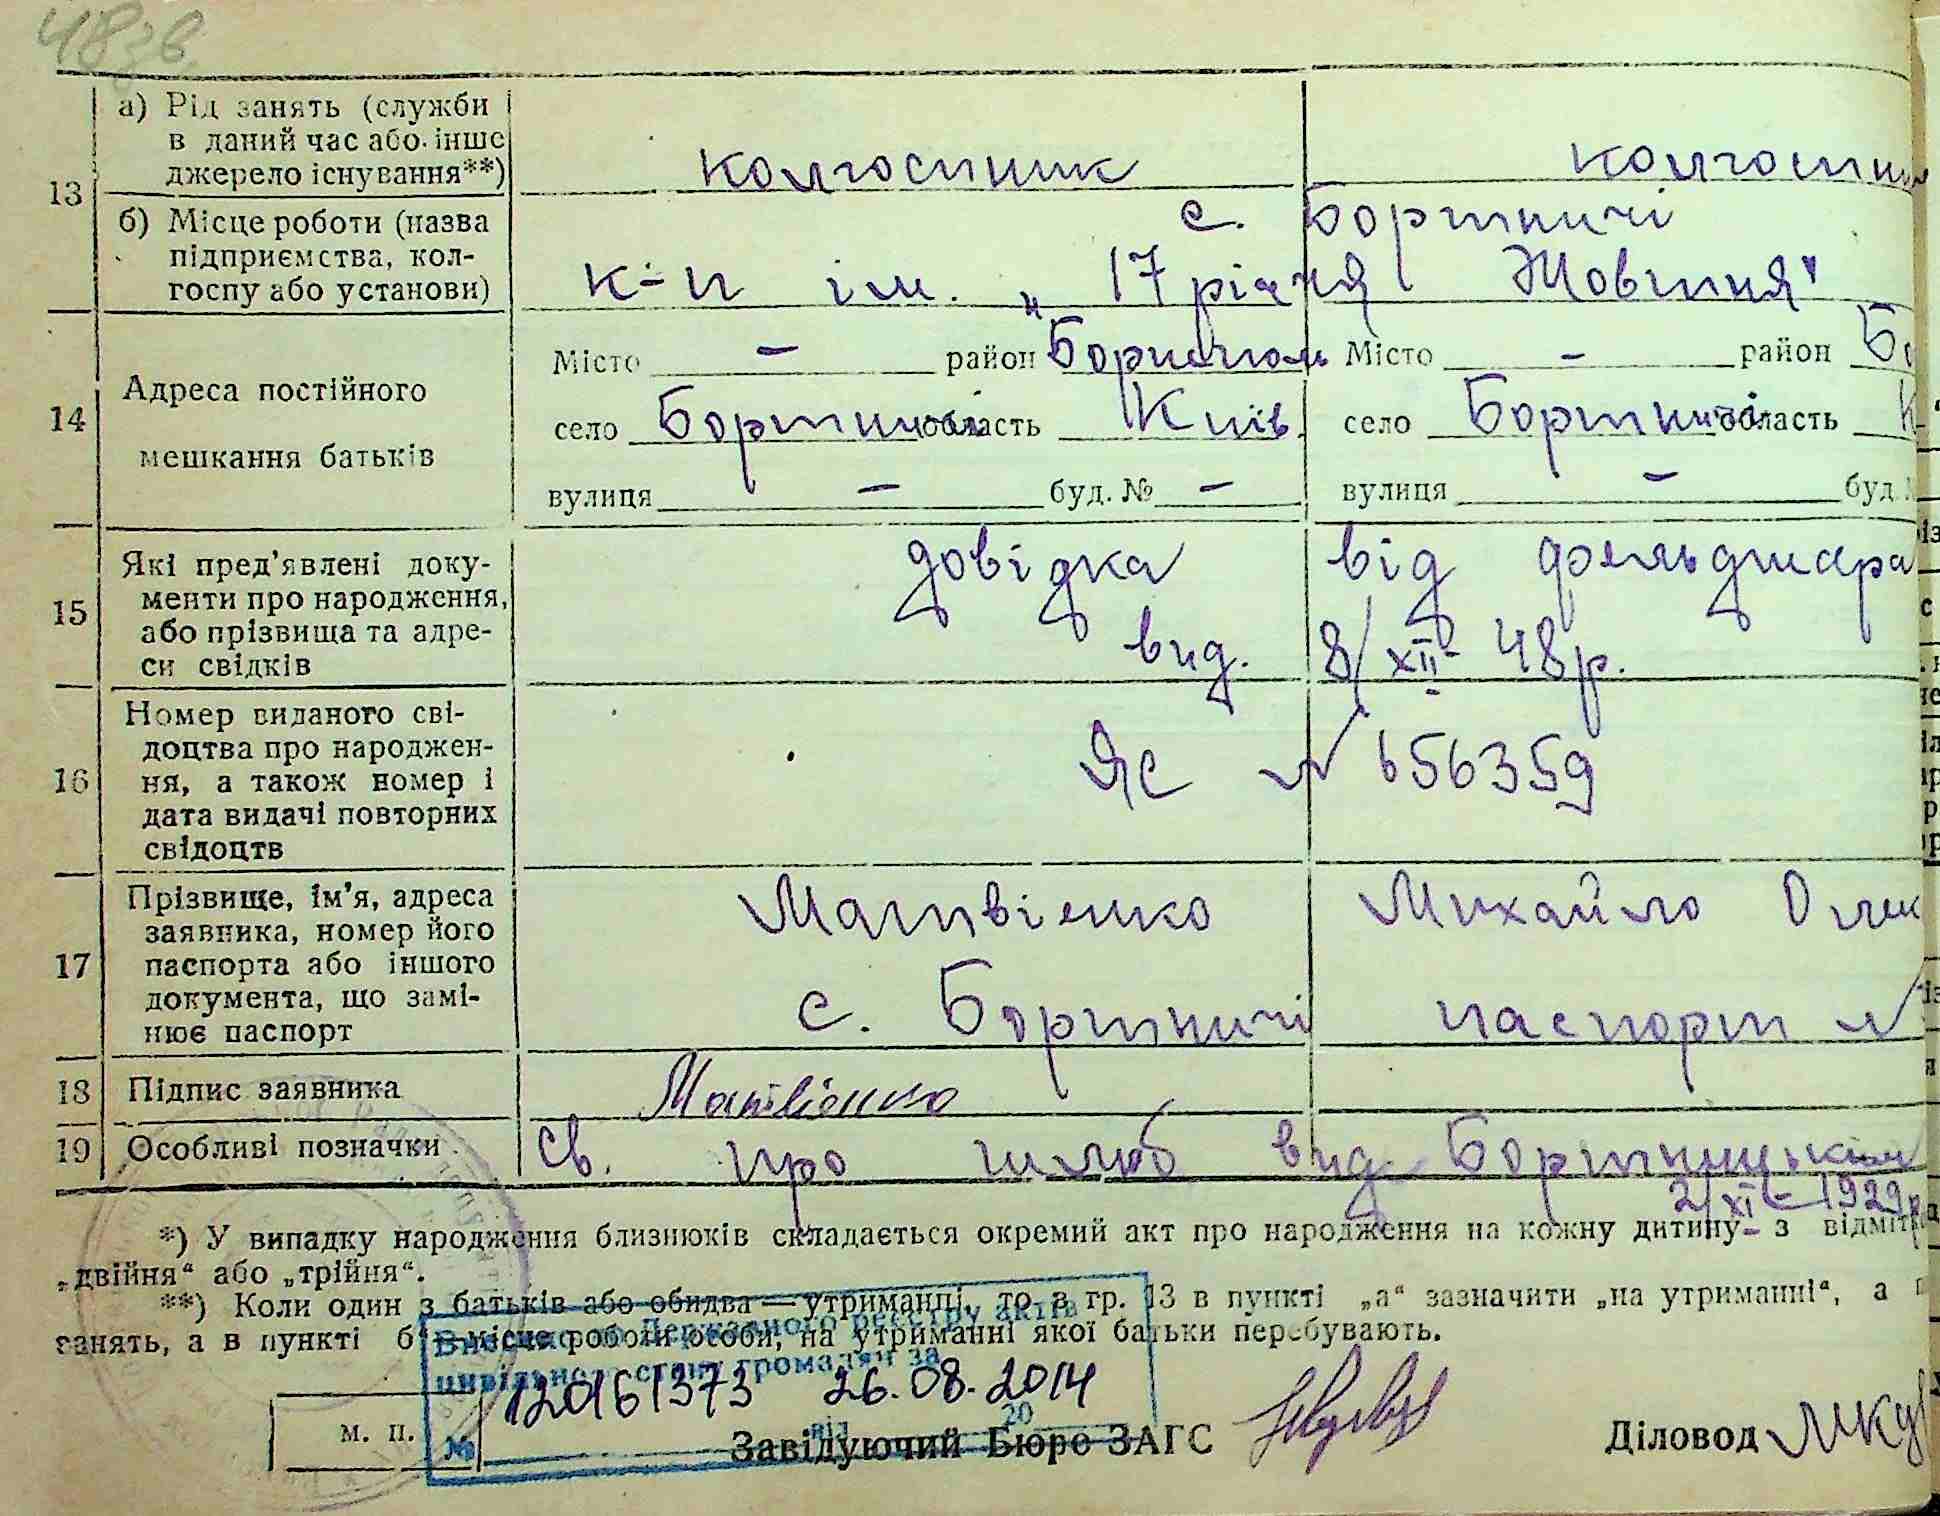 48зв.
13
а) Рід занять (служби
в даний час або інше
джерело існування**)
колгоспник
колгоспни
б) Місце роботи (назва
підприємства, кол-
госпу або установи)
с. Бортничі
к-п ім. „17 річчя Жовтня"
14
Адреса постійного
мешкання батьків
Місто — район
село Бортничі область Київ.
вулиця — буд. № —
Місто — район Бо
село Бортничі область К
вулиця — буд.
15
Які пред'явлені доку-
менти про народження,
або прізвища та адре-
си свідків
довідка від фельдшера
вид. 8/XII- 48р.
16
Номер виданого сві-
доцтва про народжен-
ня, а також номер і
дата видачі повторних
свідоцтв
ЯС № 656359
17
Прізвище, ім'я, адреса
заявника, номер його
паспорта або іншого
документа, що замі-
нює паспорт
Матвієнко Михайло Олек
с. Бортничі паспорт №
18
Підпис заявника
Матвієнко
19
Особливі позначки
Св. про шлюб вид Бортницьким
2/XI – 1929р
*) У випадку народження близнюків складається окремий акт про народження на кожну дитину з відміт
„двійня“ або „трійня“.
**) Коли один з батьків або обидва — утриманці, то в гр. 13 в пункті „а“ зазначити „на утриманні“, а
занять, а в пункті б“ — місце роботи особи, на утриманні якої батьки перебувають.
Внесено до Державного реєстру актів
цивільного стану громадян за
№ 120161373 26.08.2014
від 20
м. п.
Завідуючий Бюро ЗАГС
Діловод